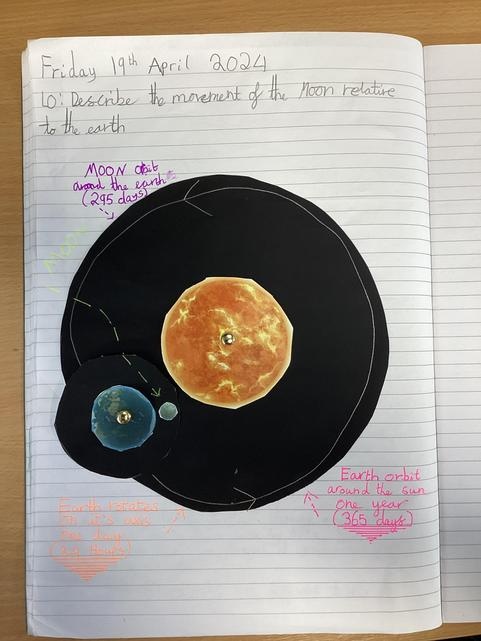 Friday 19th April 2024
LO: Describe the movement of the Moon relative
to the earth
MOON orbit
around the earth
(295 days)
MOON
Earth rotates
on it's axis
one day
(24 hours)
Earth orbit
around the sun
one year
(365 days)